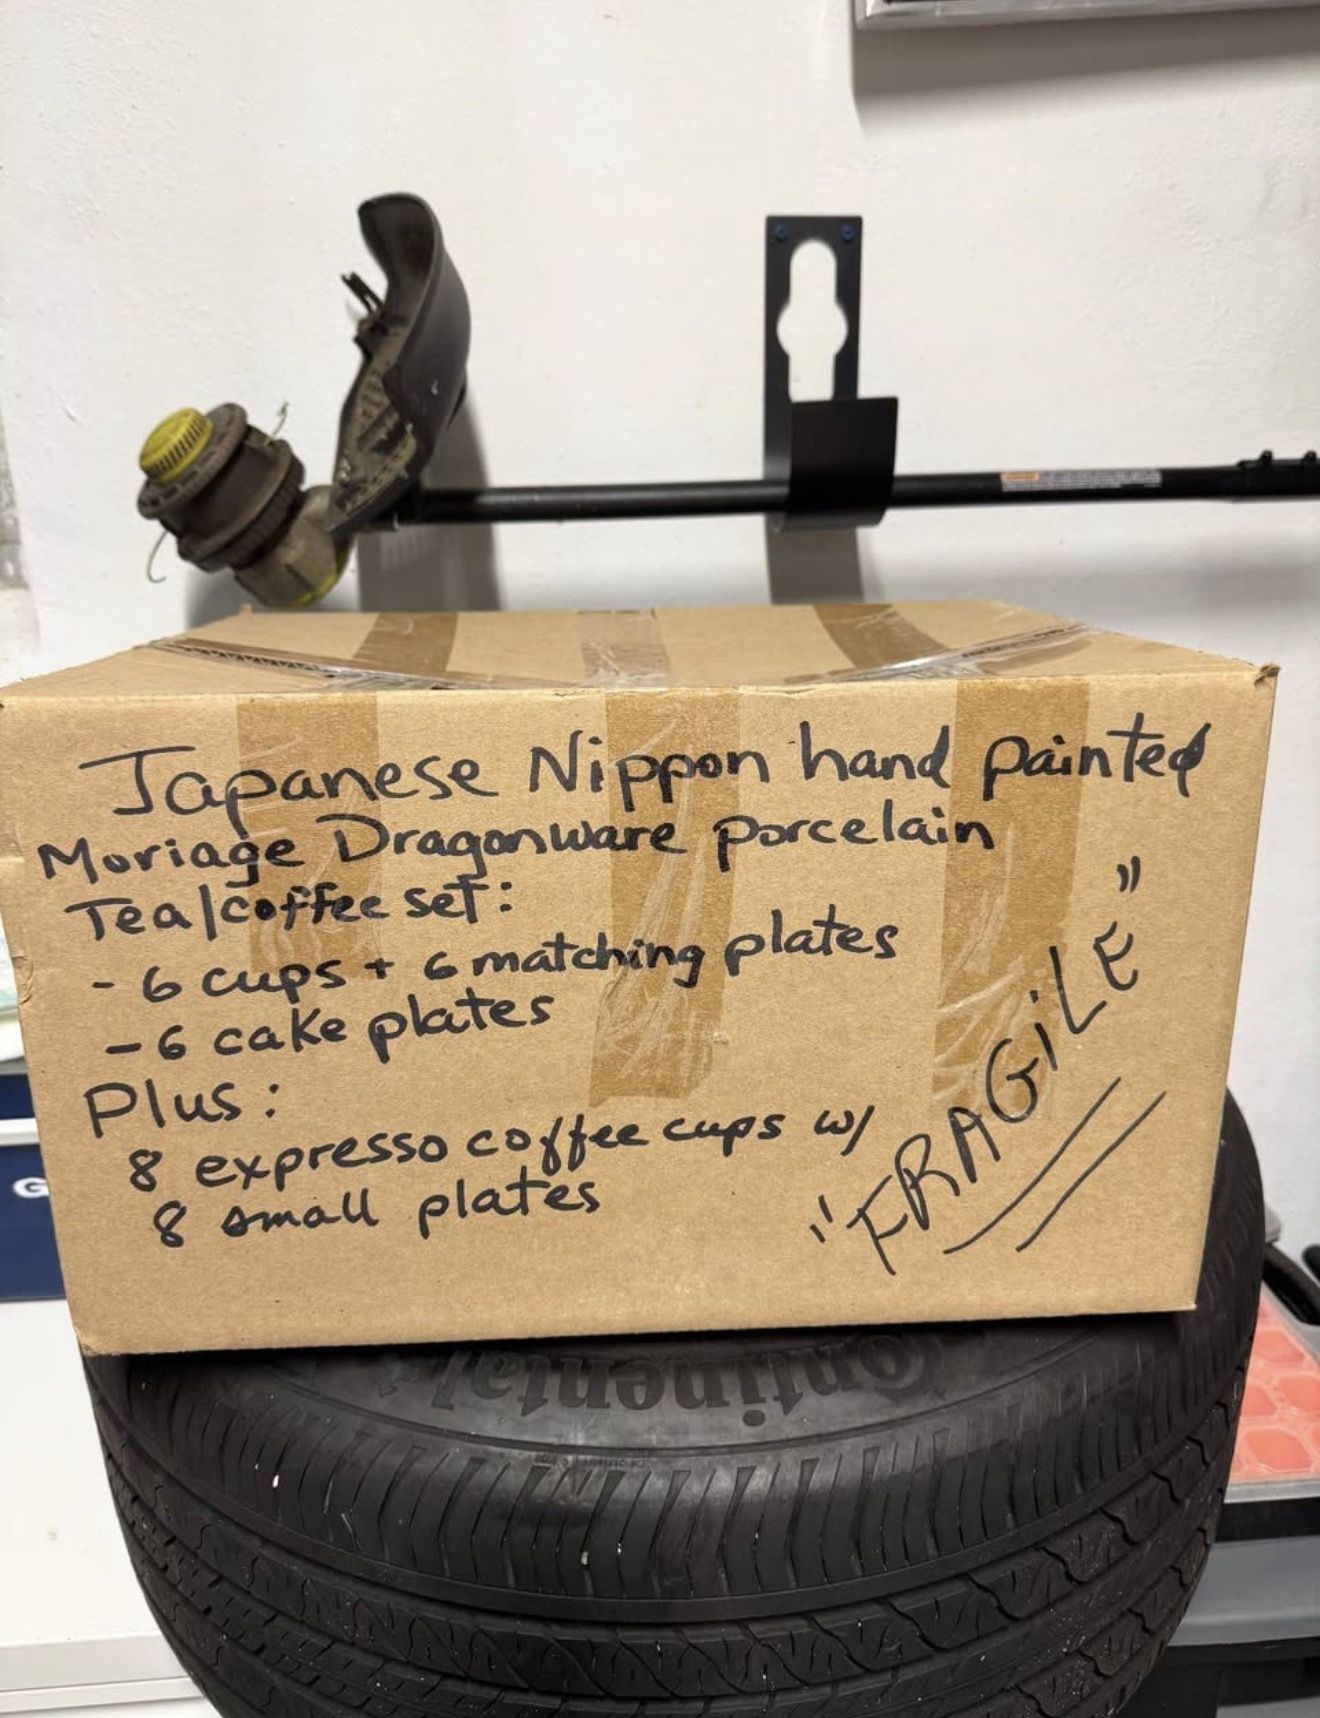 Japanese Nippon hand painted
Moriage Dragonware porcelain
Tea/coffee set:
- 6 cups + 6 matching plates
- 6 cake plates
Plus:
8 expresso coffee cups w/
8 small plates
"FRAGiLE"
Continental
G